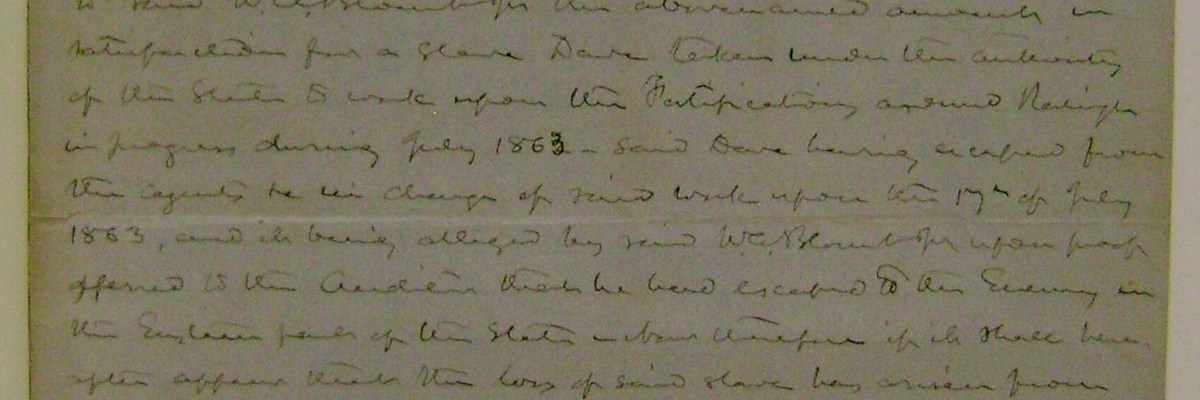 to said W. A. Blount Jr the abovenamed amount in
satisfaction for a slave Dave taken under the authority
of the State to work upon the Fortifications around Raleigh
in progress during July 1863 - said Dave having escaped from
the agents in charge of said work upon the 17th of July
1863, and it being alleged by said W. A. Blount Jr upon proof
offered to the Auditor that he had escaped to the Enemy in
the Eastern part of the State - now therefore if it shall here
after appear that the loss of said slave has arisen from